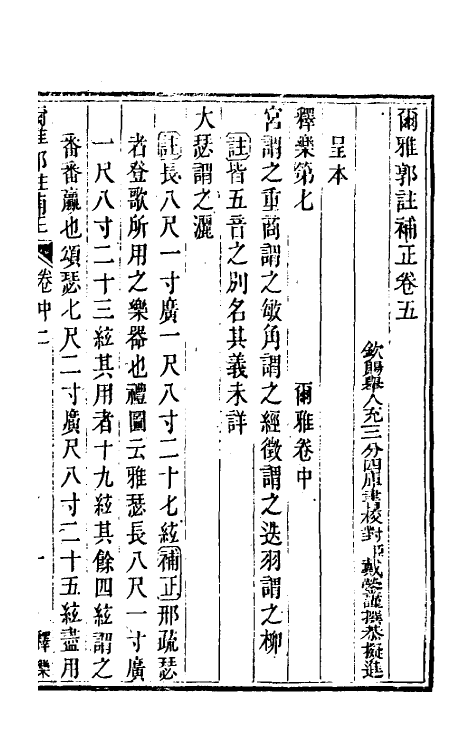 爾雅郭註補正卷五
欽賜舉人充三分四庫書校對臣戴鎣謹撰恭擬進
呈本
釋樂第七 爾雅卷中
宮謂之重商謂之敏角謂之經徵謂之迭羽謂之柳
註皆五音之別名其義未詳
大瑟謂之灑
註長八尺一寸廣一尺八寸二十七絃補正邢疏瑟
者登歌所用之樂器也禮圖云雅瑟長八尺一寸廣
一尺八寸二十三絃其用者十九絃其餘四絃謂之
番番贏也頌瑟七尺二寸廣尺八寸二十五絃盡用
爾雅郭註補正 卷中二 一 釋樂